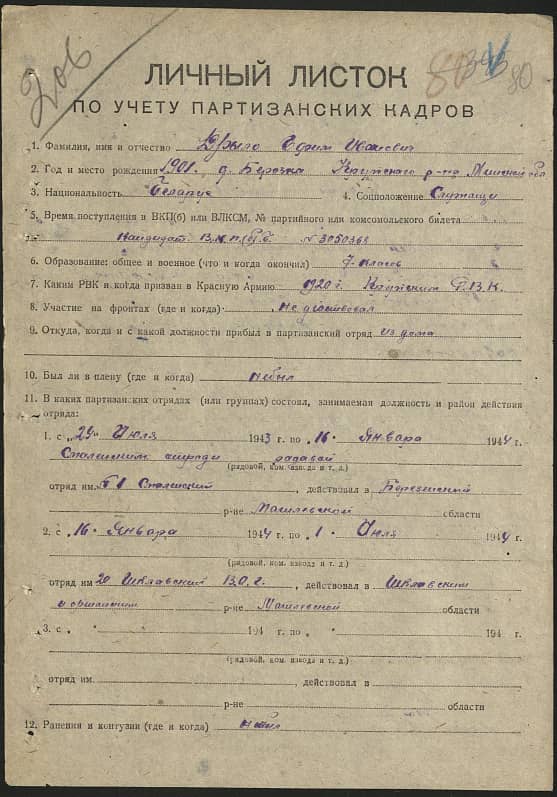 206
80 80
ЛИЧНЫЙ ЛИСТОК
ПО УЧЕТУ ПАРТИЗАНСКИХ КАДРОВ
1. Фамилия, имя и отчество Ефим Иванович
2. Год и место рождения 1901. д. Березка р-на
3. Национальность Беларус 4. Соцположение Служащи
5. Время поступления в ВКП(б) или ВЛКСМ, № партийного или комсомольского билета
Кандидат В.К.П.(б). № 3050368
6. Образование: общее и военное (что и когда окончил) 7-класов
7. Каким РВК и когда призван в Красную Армию 1920 г. Р.В.К.
8. Участие на фронтах (где и когда) не участвовал
9. Откуда, когда и с какой должности прибыл в партизанский отряд из дома
10. Был ли в плену (где и когда) небыл
11. В каких партизанских отрядах (или группах) состоял, занимаемая должность и район действия
отряда:
1. с „ Июля 1943 г. по „16" Января 1944 г.
радавой
(рядовой, ком. взвода и т. д.)
отряд им. , действовал в
р-не области
2. с „16" Января 1944 г. по „1" Июля 1944 г.
(рядовой, ком. взвода и т. д.)
отряд им 20 Шкловский , действовал в Шкловским
и р-не области
3. с „ " 194 г. по „ " 194 г.
(рядовой, ком. взвода и т. д.)
отряд им. , действовал в
р-не области
12. Ранения и контузии (где и когда) небыл